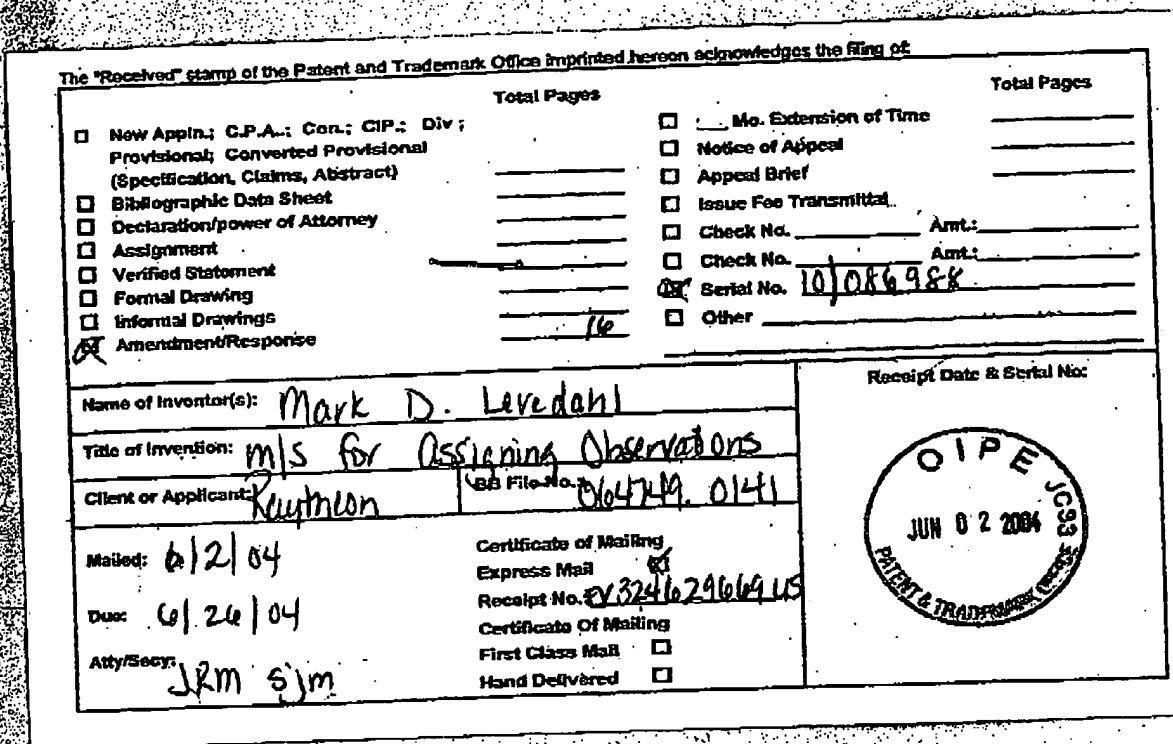 The "Received" stamp of the Patent and Trademark Office imprinted hereon acknowledges the filing of:
Total Pages
New Appln.; C.P.A..; Con.; CIP.; Div ;
Provisional; Converted Provisional
(Specification, Claims, Abstract)
Bibliographic Data Sheet
Declaration/power of Attorney
Assignment
Verified Statement
Formal Drawing
Informal Drawings
Amendment/Response 16
Total Pages
___ Mo. Extension of Time
Notice of Appeal
Appeal Brief
Issue Fee Transmittal
Check No. Amt.:
Check No. Amt.:
Serial No. 10/086988
Other
Name of Inventor(s): Mark D. Levedahl
Title of Invention: M/S for Assigning Observations
Client or Applicant: Raytheon
BB File No.: 064749.0141
Mailed: 6/2/04
Due: 6/26/04
Atty/Secy: JRM sjm
Certificate of Mailing
Express Mail
Receipt No. EV324629669US
Certificate Of Mailing
First Class Mail
Hand Delivered
Receipt Date & Serial No:
OIPE JC93
JUN 02 2004
PATENT & TRADEMARK OFFICE